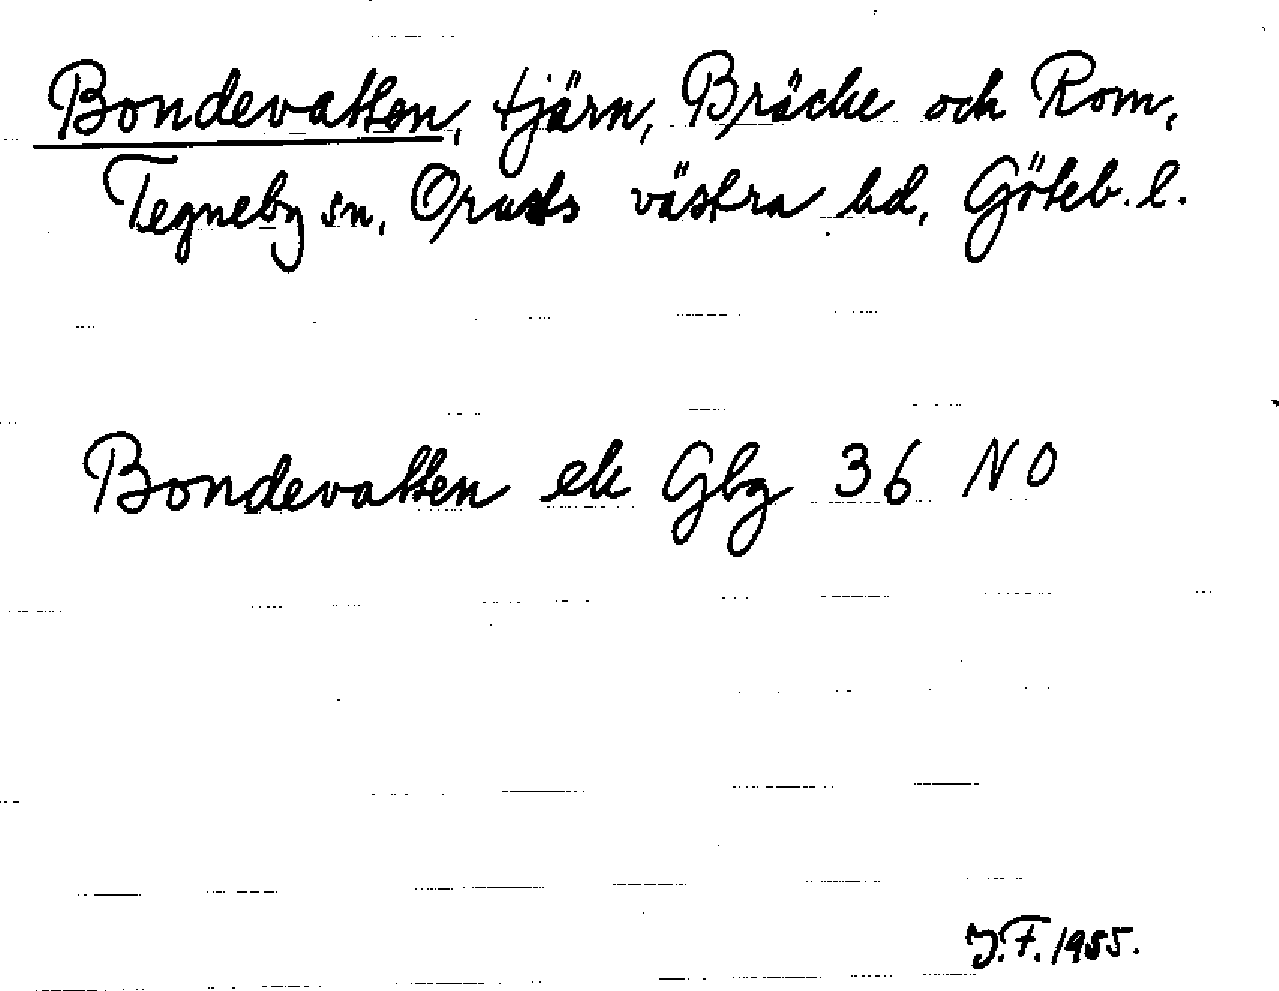 Bondevatten, tjärn, Bräcke och Rom,
Tegneby sn, Orusts västra hd, Göteb. l.
Bondevatten ek Gbg 36 NO
J.F. 1955.